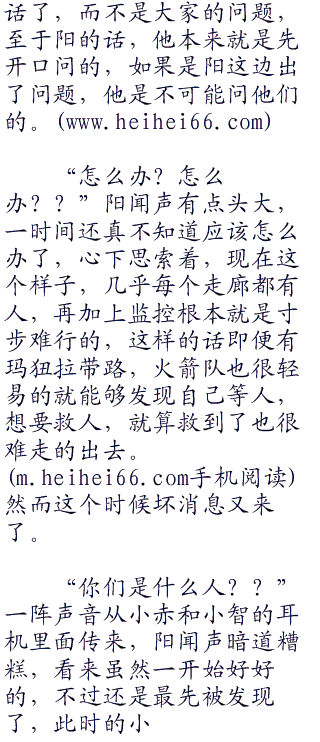 话了，而不是大家的问题，
至于阳的话，他本来就是先
开口问的，如果是阳这边出
了问题，他是不可能问他们
的。(www.heihei66.com)
“怎么办？怎么
办？？”阳闻声有点头大，
一时间还真不知道应该怎么
办了，心下思索着，现在这
个样子，几乎每个走廊都有
人，再加上监控根本就是寸
步难行的，这样的话即便有
玛狃拉带路，火箭队也很轻
易的就能够发现自己等人，
想要救人，就算救到了也很
难走的出去。
(m.heihei66.com手机阅读)
然而这个时候坏消息又来
了。
“你们是什么人？？”
一阵声音从小赤和小智的耳
机里面传来，阳闻声暗道糟
糕，看来虽然一开始好好
的，不过还是最先被发现
了，此时的小